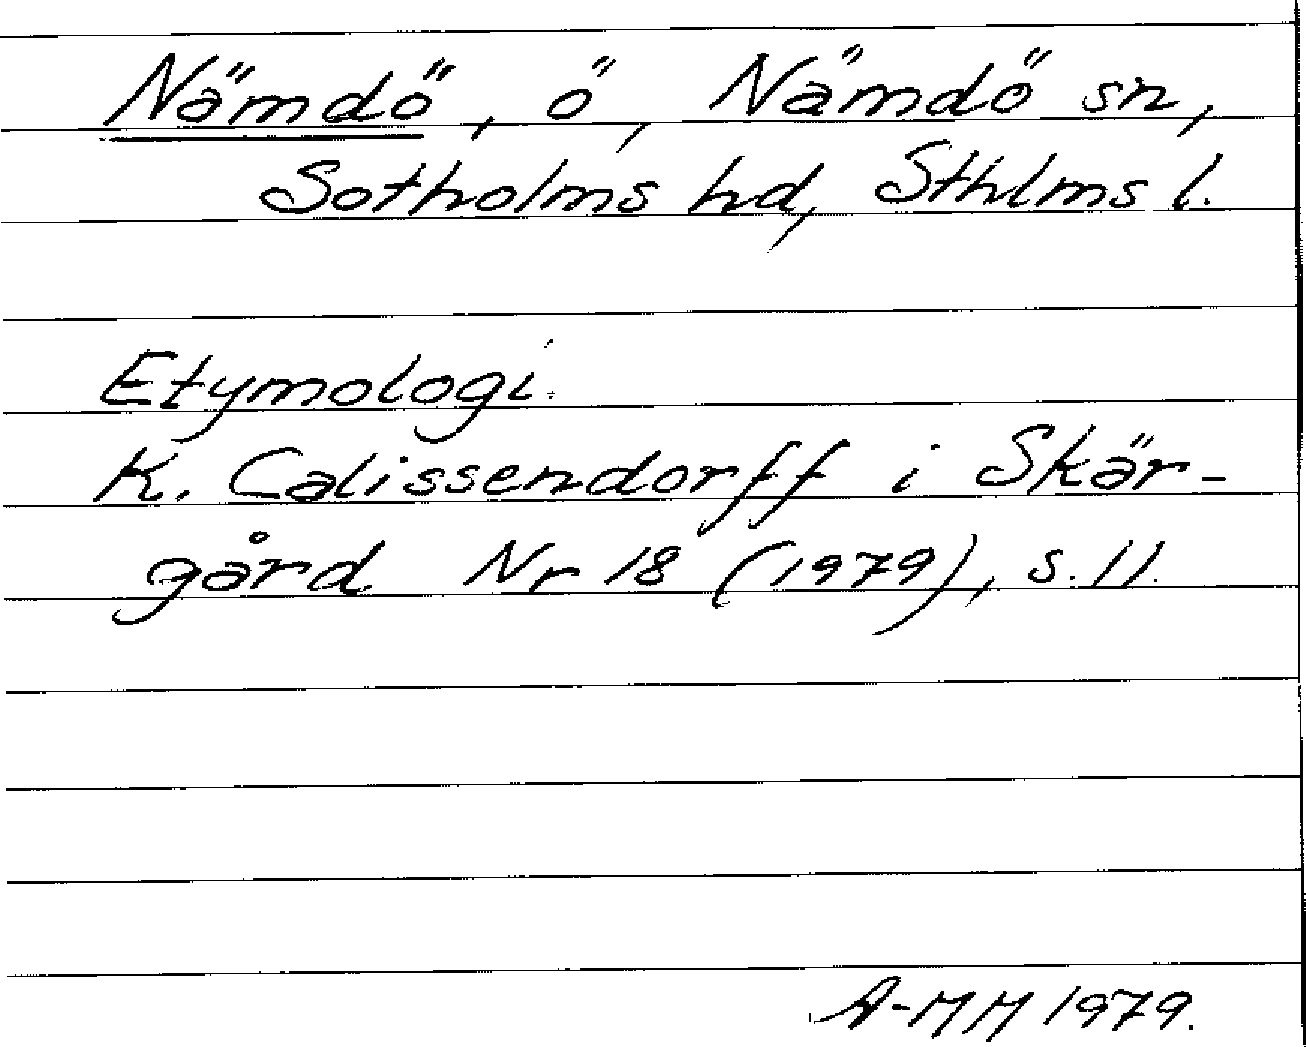 Nämdö, ö, Nämdö sn,
Sotholms hd, Sthlms l.
Etymologi.
K. Calissendorff i Skär-
gård Nr 18 (1979), s. 11.
A-MM 1979.